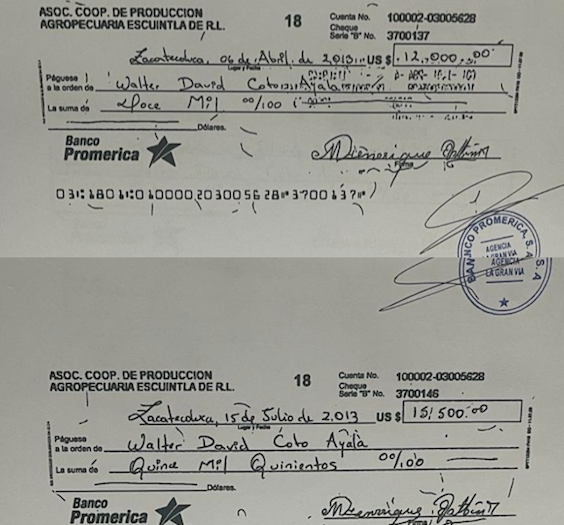 ASOC. COOP. DE PRODUCCION
AGROPECUARIA ESCUINTLA DE R.L.
18
Cuenta No. 100002-03005628
Cheque
Serie "B" No. 3700137
Zacatecoluca, 06 de Abril de 2,013 US $ 12,000.00
Lugar y Fecha
Páguese
a la orden de Walter David Coto Ayala
La suma de Doce Mil 00/100
Dólares.
Banco
Promerica
Firma
BANCO PROMERICA, S.A.
AGENCIA
LA GRAN VIA
ASOC. COOP. DE PRODUCCION
AGROPECUARIA ESCUINTLA DE R.L.
18
Cuenta No. 100002-03005628
Cheque
Serie "B" No. 3700146
Zacatecoluca, 15 de Julio de 2,013 US $ 15,500.00
Lugar y Fecha
Páguese
a la orden de Walter David Coto Ayala
La suma de Quince Mil Quinientos 00/100
Dólares.
Banco
Promerica
Firma